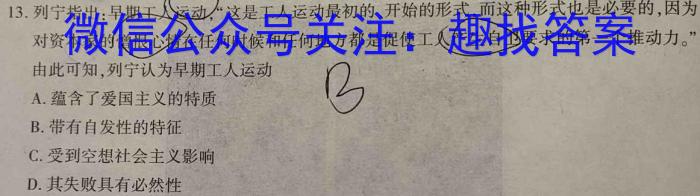 13. 列宁指出,早期工人运动,“这是工人运动最初的、开始的形式,而这种形式也是必要的,因为
对资本家的憎恨心情在任何时候和任何地方都是促使工人产生自卫要求的第一个推动力。”
微信公众号关注：趣找答案
由此可知,列宁认为早期工人运动
A. 蕴含了爱国主义的特质
B
B. 带有自发性的特征
C. 受到空想社会主义影响
D. 其失败具有必然性